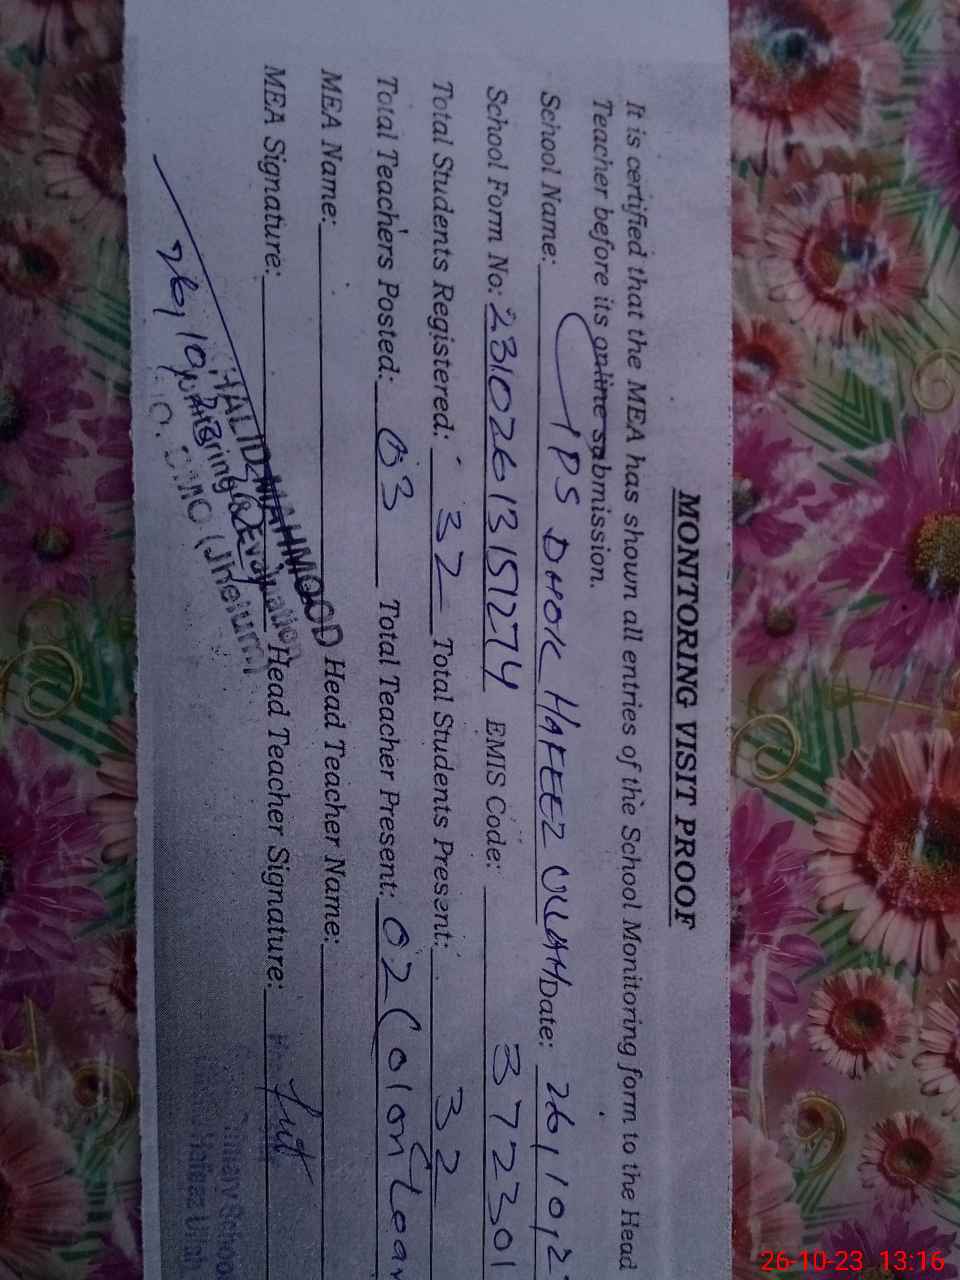 MONITORING VISIT PROOF
It is certified that the MEA has shown all entries of the School Monitoring form to the Head
Teacher before its online submission.
School Name: PS DHOK HAFEEZ ULLAH Date: 26,10,2
School Form No: 23102613151274 EMIS Code: 372301
Total Students Registered: 32 Total Students Present: 32
Total Teachers Posted: 03 Total Teacher Present: 02 (01 on Leav
MEA Name: Head Teacher Name:
MEA Signature: Head Teacher Signature:
KHALID MAHMOOD
Monitoring & Evaluation
(Jhelum)
26,10,23
Primary Schoo
Hafeez Ullah
26-10-23 13:16